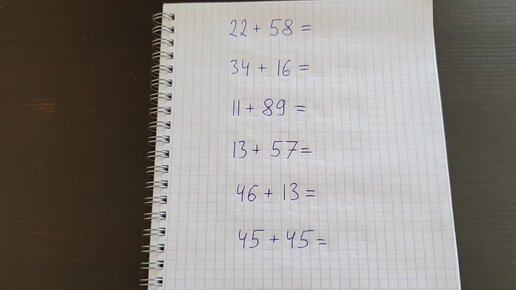 22 + 58 =
34 + 16 =
11 + 89 =
13 + 57 =
46 + 13 =
45 + 45 =